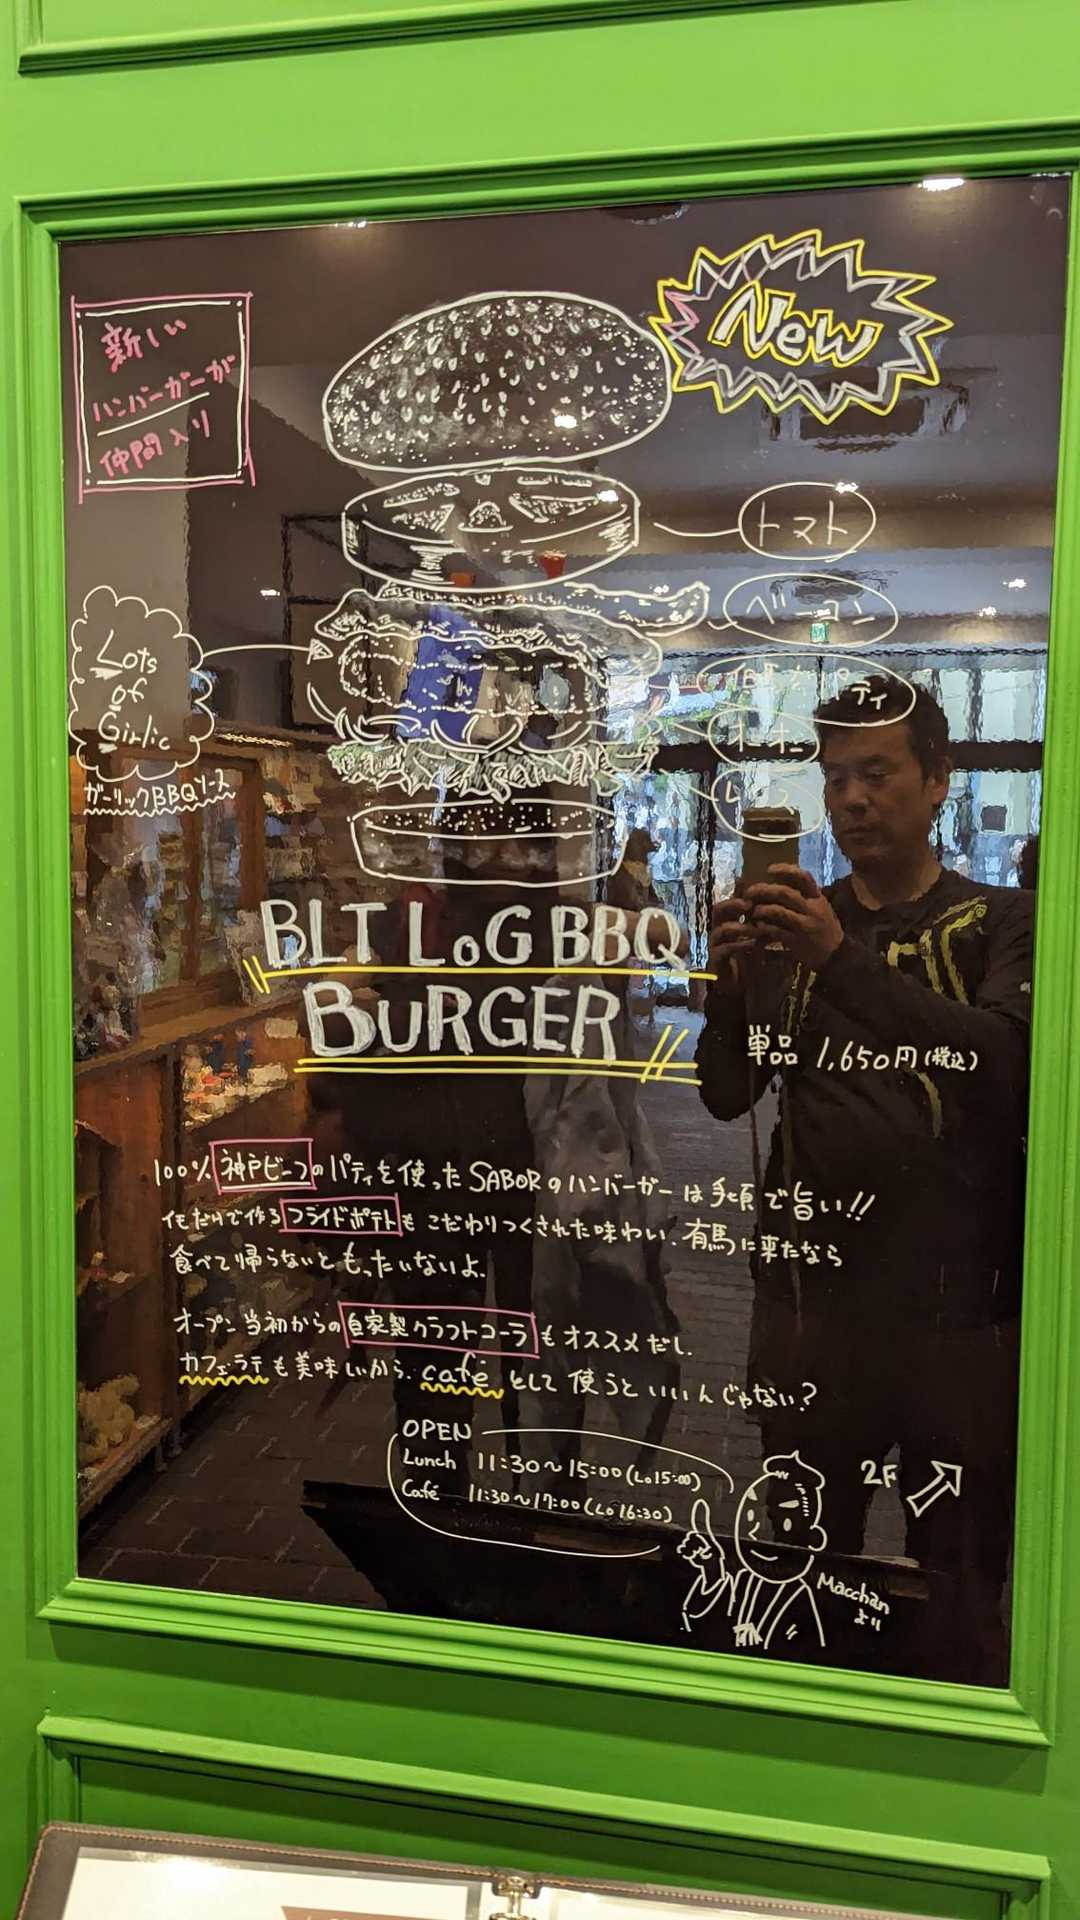 新しい
ハンバーガーが
仲間入り
New
トマト
ベーコン
パティ
Lots
of
Girlic
ガーリックBBQソース
BLT LoG BBQ
BURGER
単品 1,650円(税込)
100% 神戸ビーフのパティを使ったSABORのハンバーガーは手頃で旨い!!
イモだけで作るフライドポテトもこだわりつくされた味わい、有馬に来たなら
食べて帰らないともったいないよ。
オープン当初からの自家製クラフトコーラもオススメだし、
カフェラテも美味しいから、caféとして使うといいんじゃない?
OPEN
Lunch 11:30~15:00(Lo15:00)
Café 11:30~17:00(Lo16:30)
2F
Macchan
より